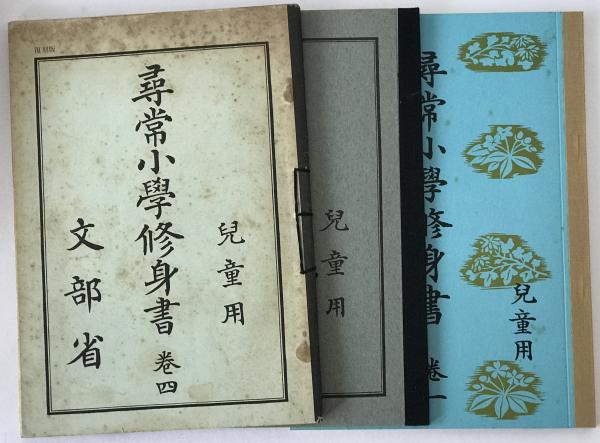 復刻版
兒童用
尋常小學修身書 卷四
文部省
兒童用
兒童用
尋常小學修身書 卷一